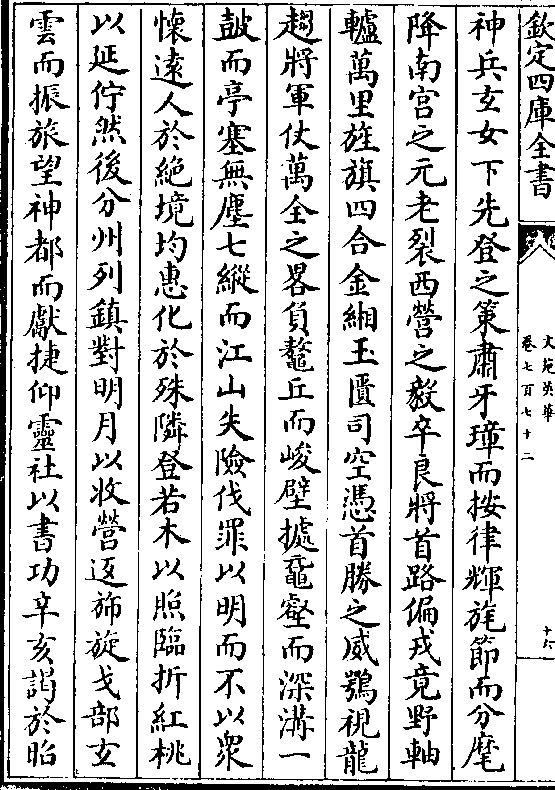 欽定四庫全書
文苑英華
卷七百七十二
神兵玄女下先登之策肅牙璋而按律輝旄節而分麾
降南宫之元老裂西營之毅卒良將首路偏戎竟野軸
轤萬里旌旗四合金緗玉匱司空憑首勝之威鶚視龍
趨將軍仗萬全之畧負鼇丘而峻壁攄黿壑而深溝一
鼓而亭塞無塵七縱而江山失險伐罪以明而不以衆
懷遠人於絶境均惠化於殊隣登若木以照臨折紅桃
以延佇然後分州列鎮對明月以收營返斾旋戈部玄
雲而振旅望神都而獻捷仰靈社以書功辛亥謁於昭